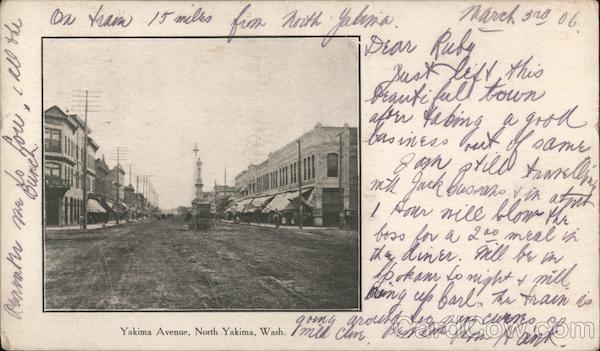 On train 15 miles from North Yakima.
March 3rd 06
Dear Ruby
Just left this
beautiful town
after taking a good
business out of same
Am still travelling
with Jack & in about
1 hour will blow the
boss for a 2.00 meal in
the diner. Will be in
Spokane to night & will
bring up Carl. The train is
going around
so I will close, from Hank.
Remember me to Cow, & all the
Bunch
Yakima Avenue, North Yakima, Wash.
CardCow.com